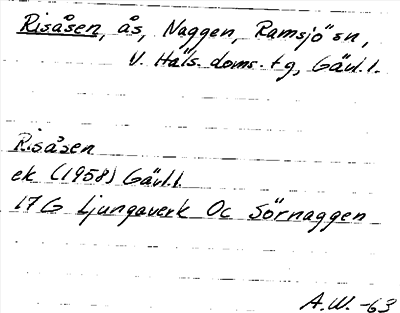 Risåsen, ås, Naggen, Ramsjö sn,
V. Häls. doms. tg, Gävl. l.
Risåsen
ek (1958) Gävl. l.
17G Ljungaverk Oc Sörnaggen
A.W. -63